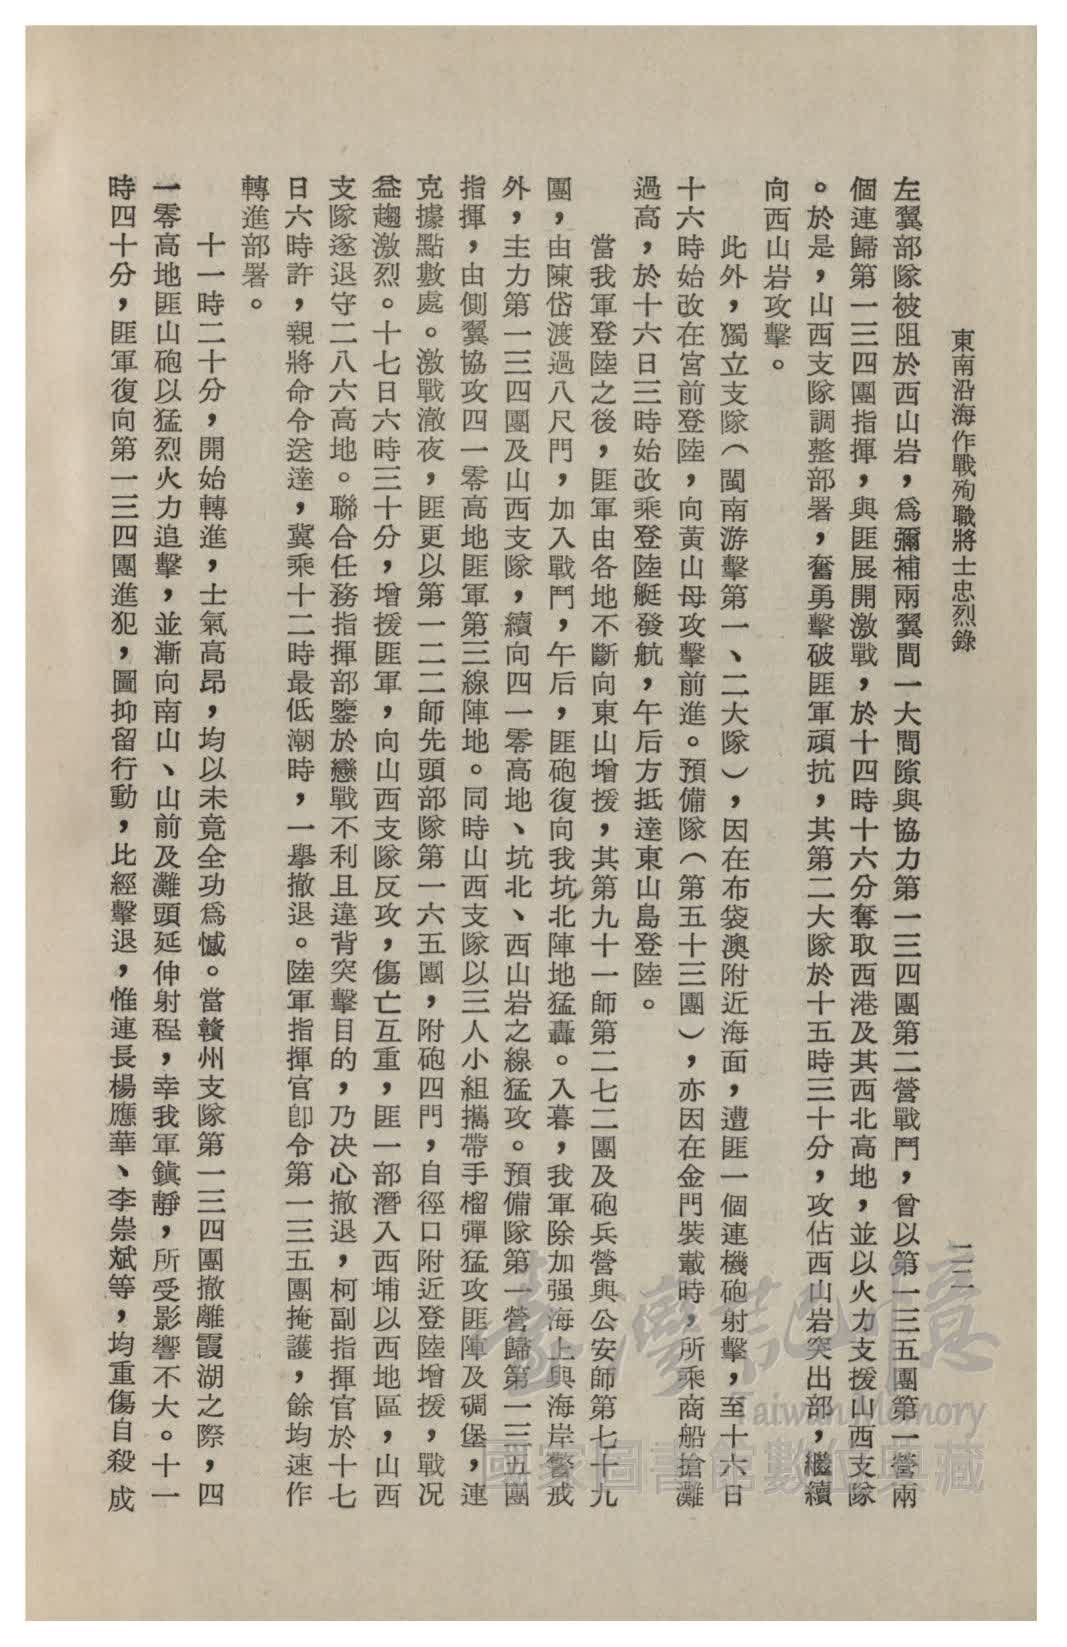 東南沿海作戰殉職將士忠烈錄
一二二
左翼部隊被阻於西山岩，爲彌補兩翼間一大間隙與協力第一三四團第二營戰鬥，曾以第一三五團第一營兩
個連歸第一三四團指揮，與匪展開激戰，於十四時十六分奪取西港及其西北高地，並以火力支援山西支隊
。於是，山西支隊調整部署，奮勇擊破匪軍頑抗，其第二大隊於十五時三十分，攻佔西山岩突出部，繼續
向西山岩攻擊。
此外，獨立支隊（閩南游擊第一、二大隊），因在布袋澳附近海面，遭匪一個連機砲射擊，至十六日
十六時始改在宮前登陸，向黃山母攻擊前進。預備隊（第五十三團），亦因在金門裝載時，所乘商船搶灘
過高，於十六日三時始改乘登陸艇發航，午后方抵達東山島登陸。
當我軍登陸之後，匪軍由各地不斷向東山增援，其第九十一師第二七二團及砲兵營與公安師第七十九
團，由陳岱渡過八尺門，加入戰鬥，午后，匪砲復向我坑北陣地猛轟。入暮，我軍除加强海上與海岸警戒
外，主力第一三四團及山西支隊，續向四一零高地、坑北、西山岩之線猛攻。預備隊第一營歸第一三五團
指揮，由側翼協攻四一零高地匪軍第三線陣地。同時山西支隊以三人小組攜帶手榴彈猛攻匪陣及碉堡，連
克據點數處。激戰澈夜，匪更以第一二二師先頭部隊第一六五團，附砲四門，自徑口附近登陸增援，戰况
益趨激烈。十七日六時三十分，增援匪軍，向山西支隊反攻，傷亡互重，匪一部潛入西埔以西地區，山西
支隊遂退守二八六高地。聯合任務指揮部鑒於戀戰不利且違背突擊目的，乃决心撤退，柯副指揮官於十七
日六時許，親將命令送達，冀乘十二時最低潮時，一舉撤退。陸軍指揮官卽令第一三五團掩護，餘均速作
轉進部署。
十一時二十分，開始轉進，士氣高昂，均以未竟全功爲憾。當贛州支隊第一三四團撤離霞湖之際，四
一零高地匪山砲以猛烈火力追擊，並漸向南山、山前及灘頭延伸射程，幸我軍鎮靜，所受影響不大。十一
時四十分，匪軍復向第一三四團進犯，圖抑留行動，比經擊退，惟連長楊應華、李崇斌等，均重傷自殺成
臺灣記憶
Taiwan Memory
國家圖書館數位典藏